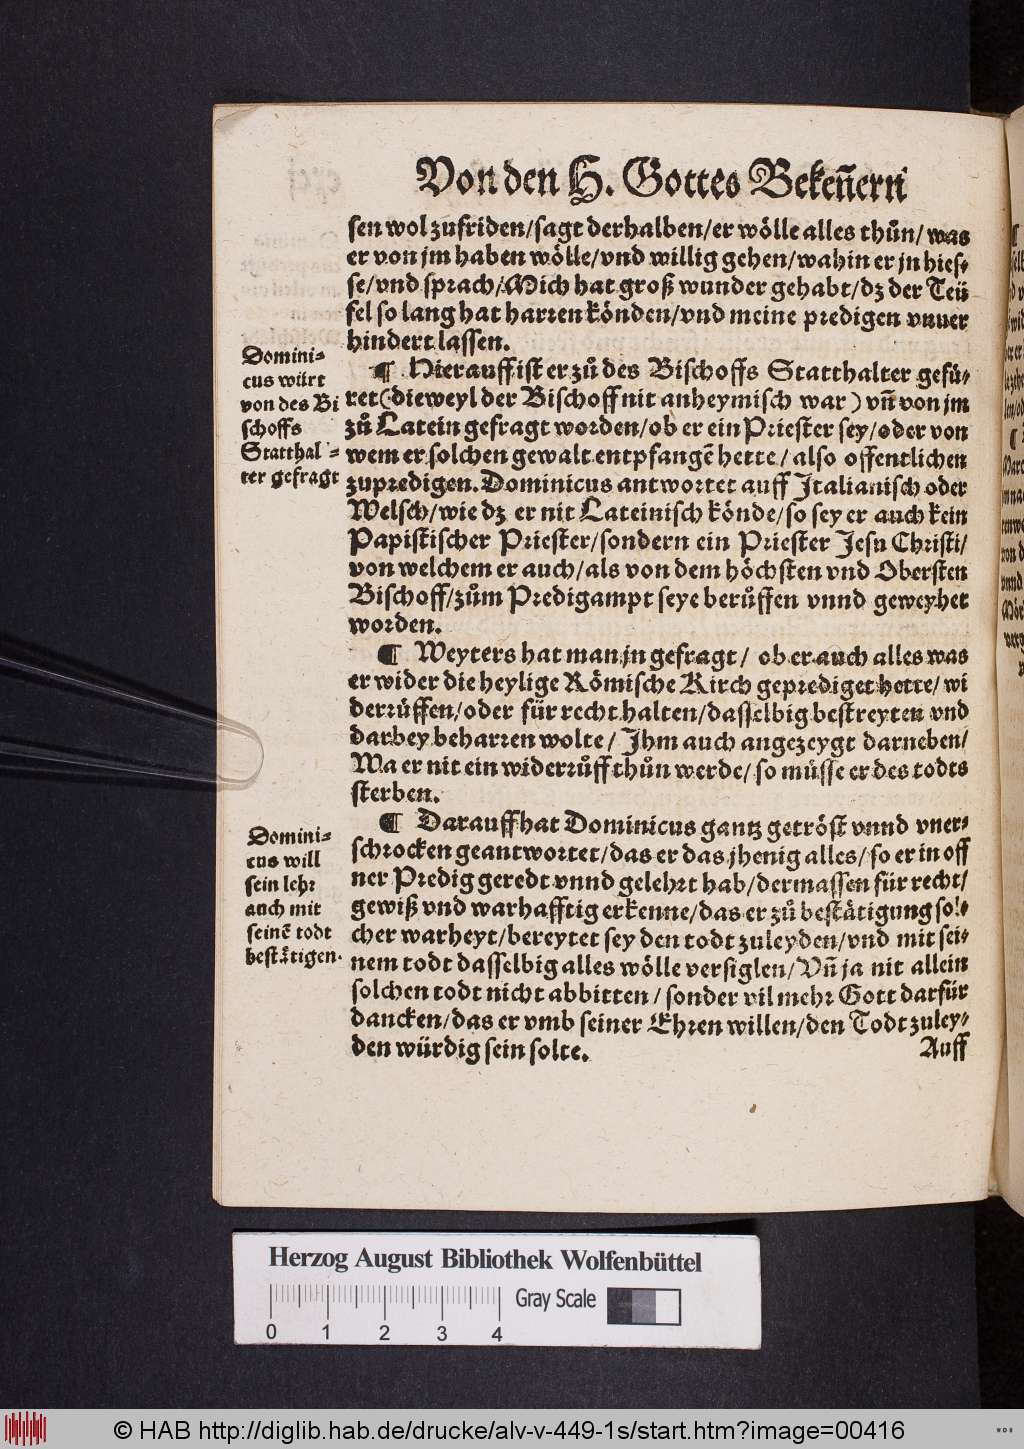 Von den H. Gottes Bekeñern
sen wol zufriden/sagt derhalben/er wölle alles thůn/was
er von jm haben wölle/vnd willig gehen/wahin er jn hies⸗
se/vnd sprach/Mich hat groß wunder gehabt/dz der Teü
fel so lang hat harren könden/vnd meine predigen vnuer
hindert lassen.
¶ Hierauff ist er zů des Bischoffs Statthalter gefü⸗
ret(dieweyl der Bischoff nit anheymisch war) vñ von jm
zů Latein gefragt worden/ob er ein Priester sey/oder von
wem er solchen gewalt entpfangẽ hette/also offentlichen
zupredigen. Dominicus antwortet auff Italianisch oder
Welsch/wie dz er nit Lateinisch könde/so sey er auch kein
Papistischer Priester/sondern ein Priester Jesu Christi/
von welchem er auch/als von dem höchsten vnd Obersten
Bischoff/zům Predigampt seye berůffen vnnd geweyhet
worden.
¶ Weyters hat man jn gefragt/ ob er auch alles was
er wider die heylige Römische Kirch geprediget hette/wi
derrůffen/oder für recht halten/dasselbig bestreyten vnd
darbey beharren wolte/ Jhm auch angezeygt darneben/
Wa er nit ein widerrůff thůn werde/so müsse er des todts
sterben.
¶ Darauff hat Dominicus gantz getröst vnnd vner⸗
schrocken geantwortet/das er das jhenig alles/so er in off
ner Predig geredt vnnd gelehrt hab/dermassen für recht/
gewiß vnd warhafftig erkenne/das er zů bestätigung sol⸗
cher warheyt/bereytet sey den todt zuleyden/vnd mit sei⸗
nem todt dasselbig alles wölle versiglen/Vñ ja nit allein
solchen todt nicht abbitten/sonder vil mehr Gott darfür
dancken/das er vmb seiner Ehren willen/den Todt zuley⸗
den würdig sein solte.
Auff
Domini⸗
cus würt
von des Bi
schoffs
Statthal⸗
ter gefragt
Domini⸗
cus will
sein lehr
auch mit
seinẽ todt
bestätigen.
Herzog August Bibliothek Wolfenbüttel
Gray Scale
0 1 2 3 4
© HAB http://diglib.hab.de/drucke/alv-v-449-1s/start.htm?image=00416